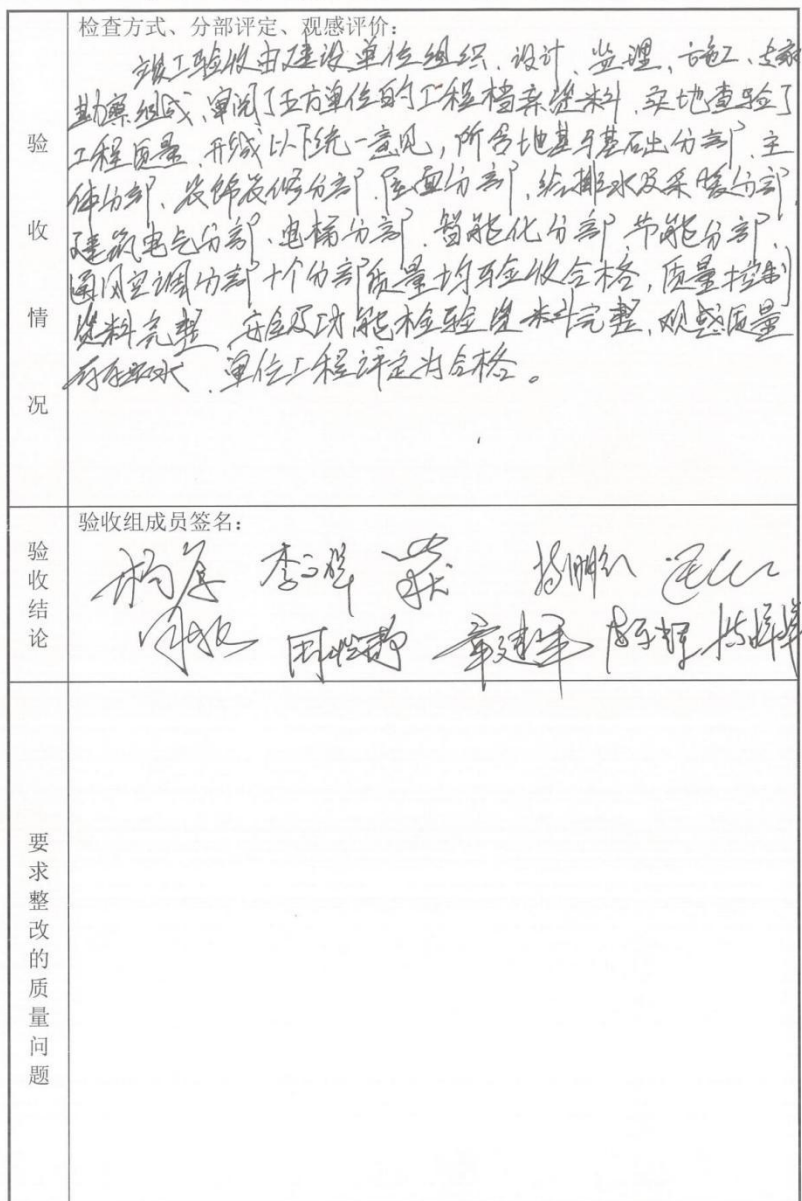 检查方式、分部评定、观感评价:
竣工验收由建设单位组织、设计、监理、施工、
勘察组成、审阅了五方单位的工程档案资料、实地查验了
工程质量、形成以下统一意见,所含地基与基础分部、主
体分部、装饰装修分部、屋面分部、给排水及采暖分部、
建筑电气分部、电梯分部、智能化分部、节能分部、
通风空调分部十个分部质量均验收合格,质量控制
资料完整、安全及功能检验资料完整,观感质量
符合要求、单位工程评定为合格。
验收情况
验收组成员签名:
验收结论
李
章建军
要求整改的质量问题